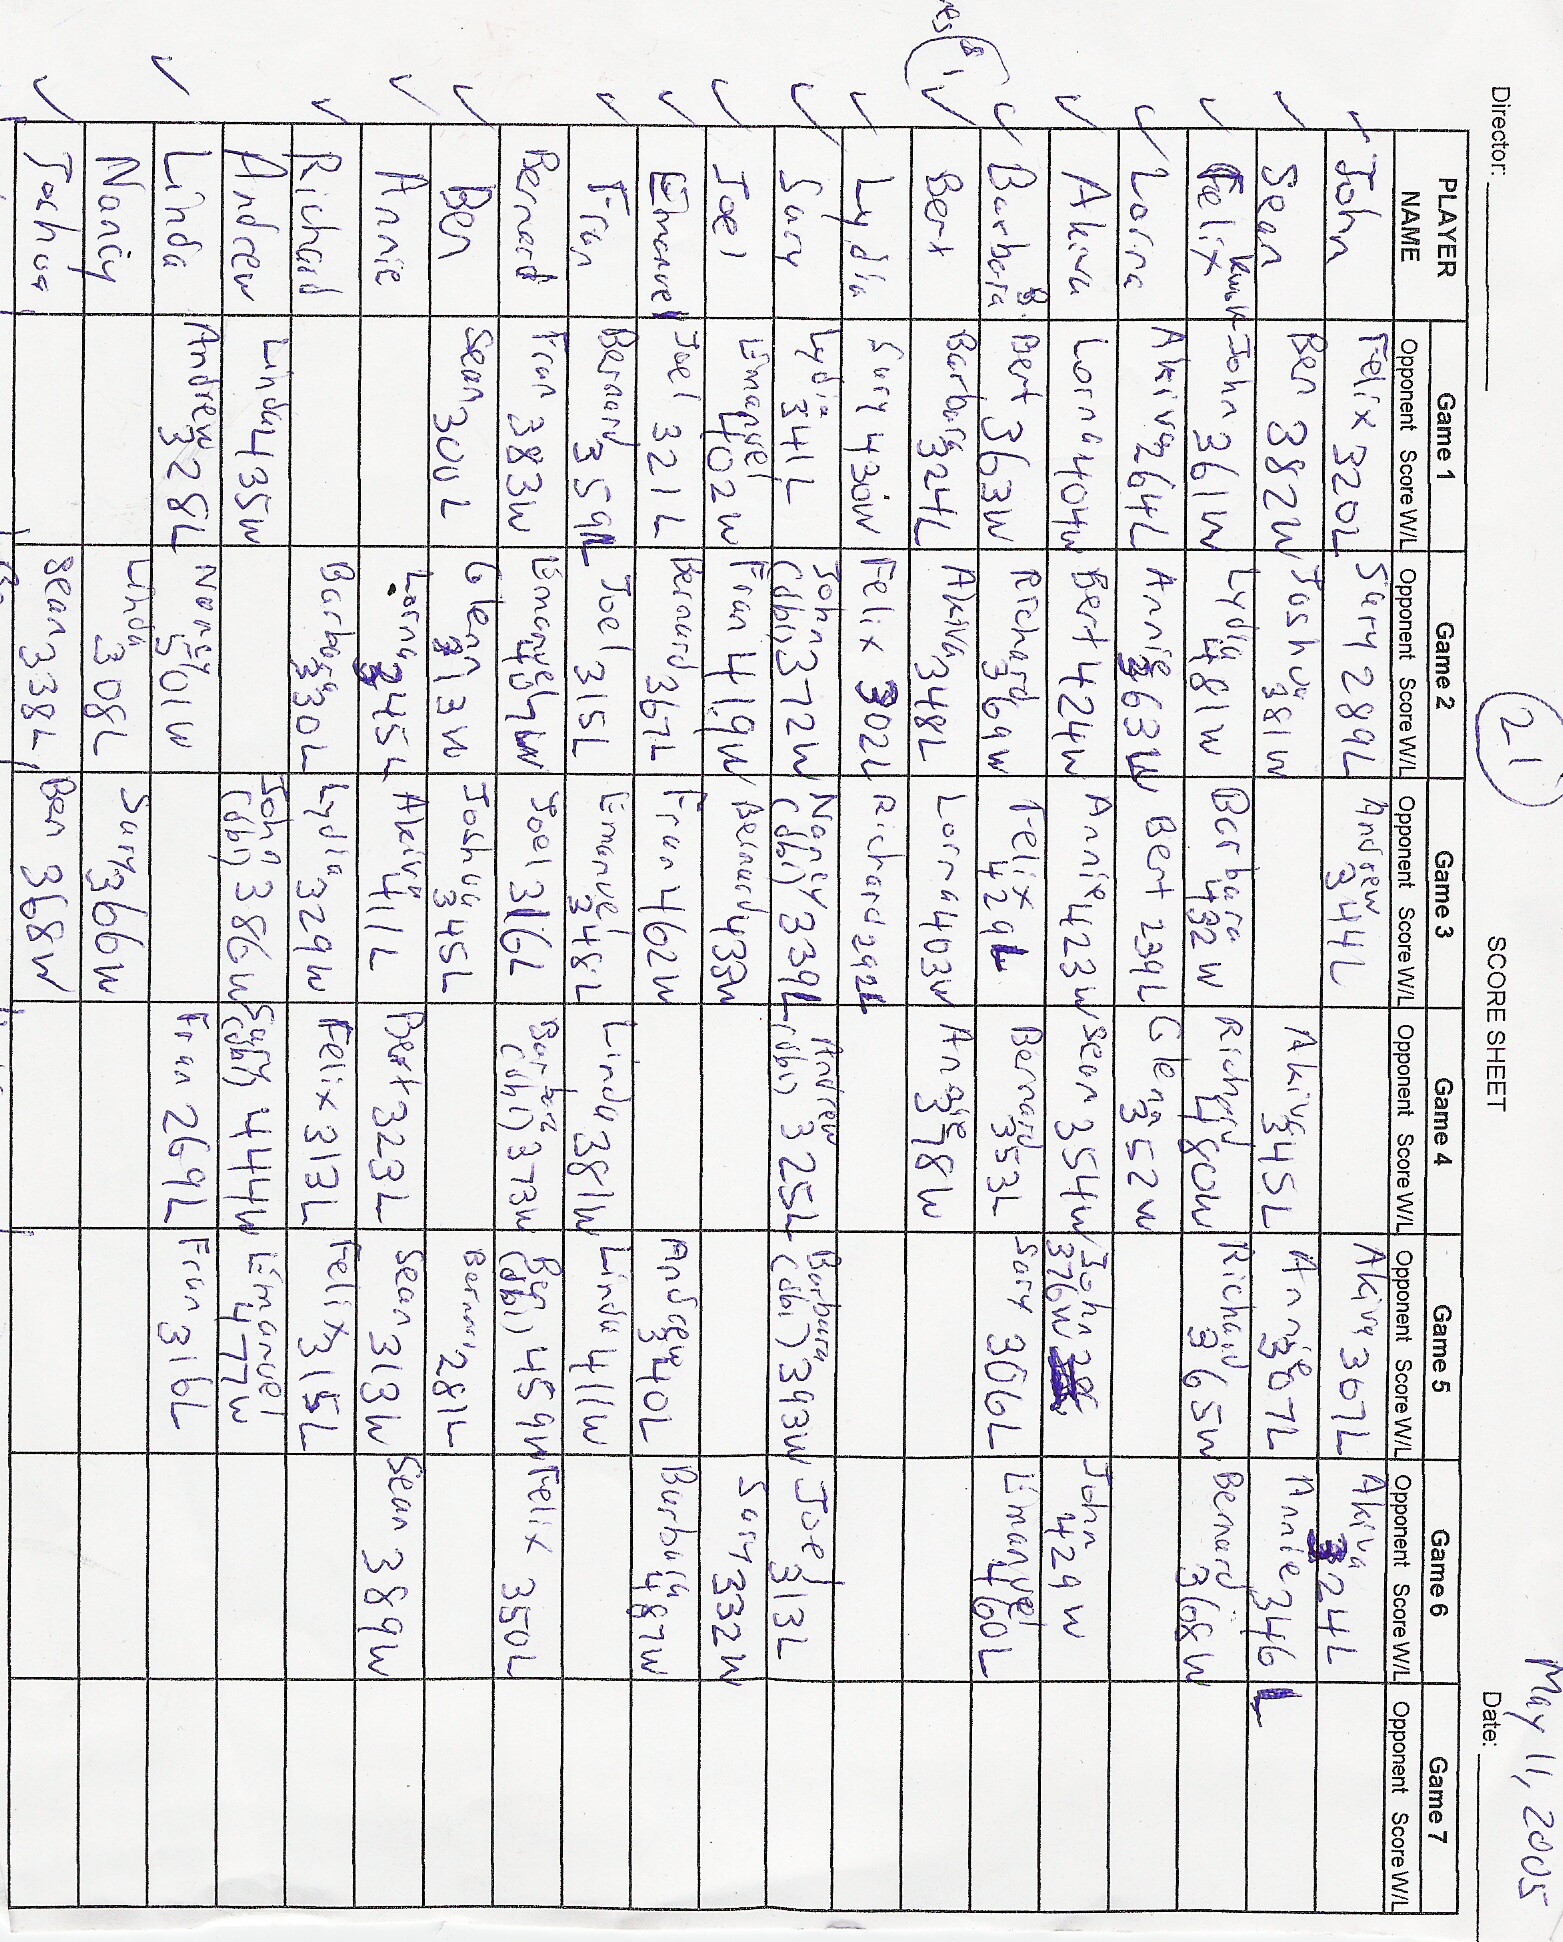 May 11, 2005
21
Director: SCORE SHEET Date:
PLAYER NAME Game 1 Game 2 Game 3 Game 4 Game 5 Game 6 Game 7
Opponent Score W/L Opponent Score W/L Opponent Score W/L Opponent Score W/L Opponent Score W/L Opponent Score W/L Opponent Score W/L
✓ John Felix 320L Sury 289L Andrew 344L Akiva 367L Akiva 324L
✓ Sean Ben 382W Joshua 381W Akiva 345L Annie 307L Annie 346L
✓ Felix John 361W Lydia 481W Barbara 432W Richard 480W Richard 365W Bernard 368W
✓ Lorna Akiva 264L Annie 363W Bert 239L Glenn 352W
✓ Akiva Lorna 404W Bert 424W Annie 423W Sean 354W John 376W John 429W
✓ Barbara B. Bert 363W Richard 369W Felix 429L Bernard 353L Sury 366L Emanuel 460L
✓ Bert Barbara 324L Akiva 348L Lorna 403W Annie 378W
✓ Lydia Sury 430W Felix 302L Richard 292L
✓ Sury Lydia 341L John (dbl) 372W Nancy (dbl) 339L Andrew (dbl) 325L Barbara (dbl) 393W Joel 313L
✓ Joel Emanuel 402W Fran 419W Bernard 433W Sury 332W
✓ Emanuel Joel 321L Bernard 367L Fran 462W Andrew 340L Barbara 487W
✓ Fran Bernard 359L Joel 315L Emanuel 348L Linda 381W Linda 411W
Bernard Fran 383W Emanuel 407W Joel 316L Barbara (dbl) 373W Ben (dbl) 459W Felix 350L
✓ Ben Sean 300L Glenn 313W Joshua 345L Bernard 281L
✓ Annie Lorna 345L Akiva 411L Bert 323L Sean 313W Sean 389W
✓ Richard Barbara 330L Lydia 329W Felix 313L Felix 315L
Andrew Linda 435W John (dbl) 386W Sury (dbl) 444W Emanuel 477W
✓ Linda Andrew 328L Nancy 501W Fran 269L Fran 316L
Nancy Linda 308L Sury 366W
✓ Joshua Sean 338L Ben 368W